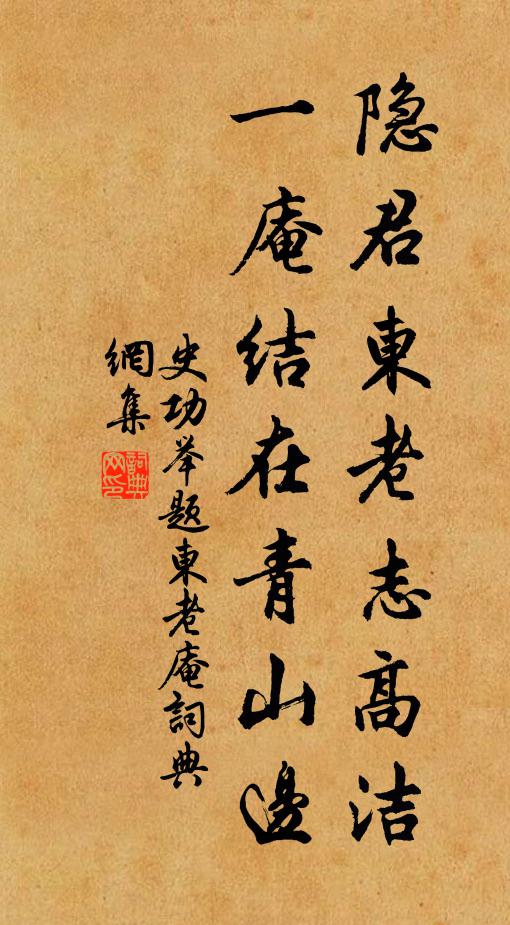 隐君東老志高洁
一庵结在青山邊
史功举题東老庵詞典
網集
詞典
网印